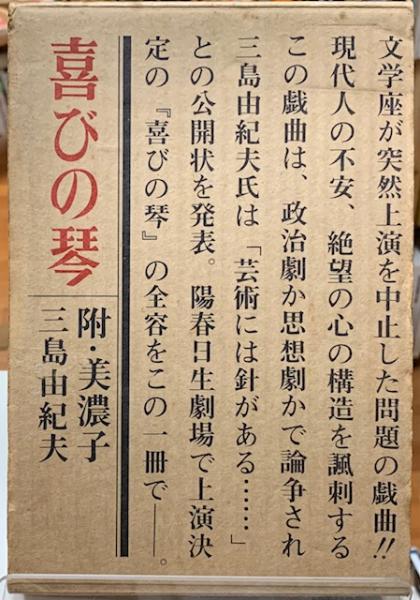 文学座が突然上演を中止した問題の戯曲!!
現代人の不安、絶望の心の構造を諷刺する
この戯曲は、政治劇か思想劇かで論争され
三島由紀夫氏は「芸術には針がある……」
との公開状を発表。陽春日生劇場で上演決
定の『喜びの琴』の全容をこの一冊で——。
喜びの琴
附・美濃子
三島由紀夫